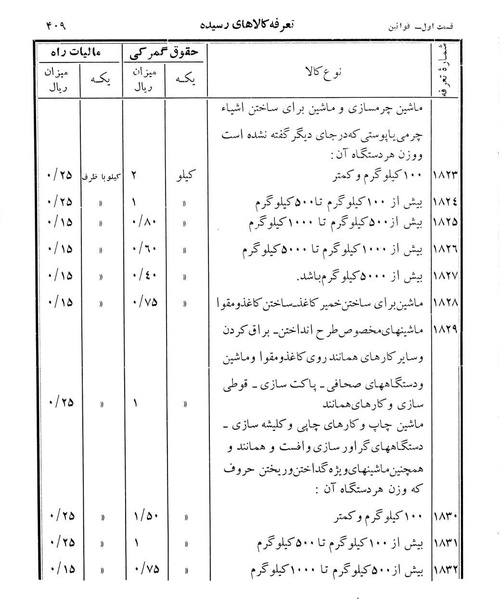 قسمت اول ـ قوانین تعرفه کالاهای رسیده ۴۰۹
شمارهٔ تعرفه نوع کالا حقوق گمرکی مالیات راه
یکه میزان ریال یکه میزان ریال
ماشین چرمسازی و ماشین برای ساختن اشیاء
چرمی یا پوستی که در جای دیگر گفته نشده است
و وزن هر دستگاه آن :
۱۸۲۳ ۱۰۰ کیلوگرم و کمتر کیلو ۲ کیلو با ظرف ۰/۲۵
۱۸۲۴ بیش از ۱۰۰ کیلوگرم تا ۵۰۰ کیلوگرم « ۱ « ۰/۲۵
۱۸۲۵ بیش از ۵۰۰ کیلوگرم تا ۱۰۰۰ کیلوگرم « ۰/۸۰ « ۰/۱۵
۱۸۲۶ بیش از ۱۰۰۰ کیلوگرم تا ۵۰۰۰ کیلوگرم « ۰/۶۰ « ۰/۱۵
۱۸۲۷ بیش از ۵۰۰۰ کیلوگرم باشد. « ۰/۴۰ « ۰/۱۵
۱۸۲۸ ماشین برای ساختن خمیر کاغذ ـ ساختن کاغذ و مقوا « ۰/۷۵ « ۰/۱۵
۱۸۲۹ ماشینهای مخصوص طرح انداختن ـ براق کردن
و سایر کارهای همانند روی کاغذ و مقوا و ماشین
و دستگاههای صحافی ـ پاکت سازی ـ قوطی
سازی و کارهای همانند « ۱ « ۰/۲۵
ماشین چاپ و کارهای چاپی و کلیشه سازی ـ
دستگاههای گراور سازی و افست و همانند و
همچنین ماشینهای ویژه گداختن و ریختن حروف
که وزن هر دستگاه آن :
۱۸۳۰ ۱۰۰ کیلوگرم و کمتر « ۱/۵۰ « ۰/۲۵
۱۸۳۱ بیش از ۱۰۰ کیلوگرم تا ۵۰۰ کیلوگرم « ۱ « ۰/۲۵
۱۸۳۲ بیش از ۵۰۰ کیلوگرم تا ۱۰۰۰ کیلوگرم « ۰/۷۵ « ۰/۱۵